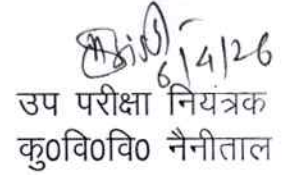 6/4/26
उप परीक्षा नियंत्रक
कु०वि०वि० नैनीताल